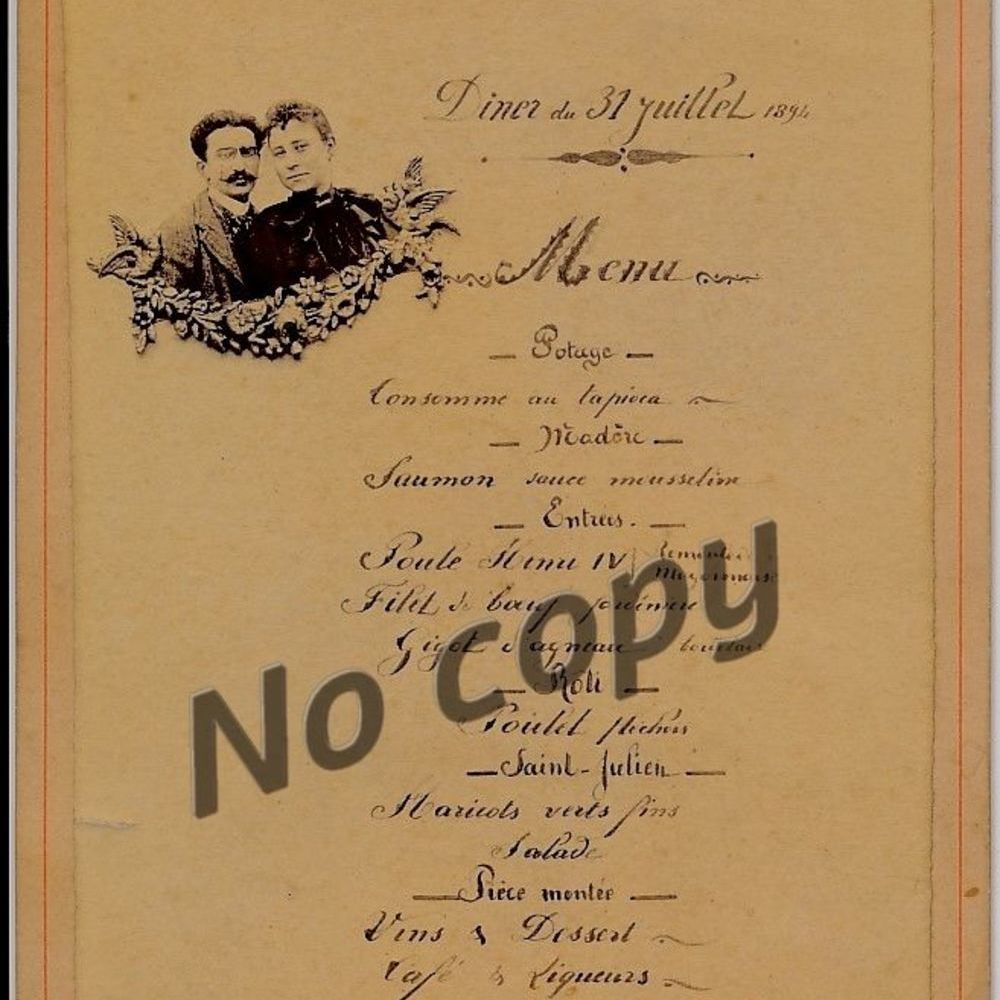 Diner du 31 Juillet 1894
Menu
— Potage —
Consommé au tapioca
— Madère —
Saumon sauce mousseline
— Entrées. —
Poule Henri IV
Mayonnaise
Filet de bœuf
Gigot d'agneau
— Rôti —
Poulet
— Saint-Julien —
Haricots verts fins
Salade
— Pièce montée —
Vins & Dessert
Café & Liqueurs
No copy